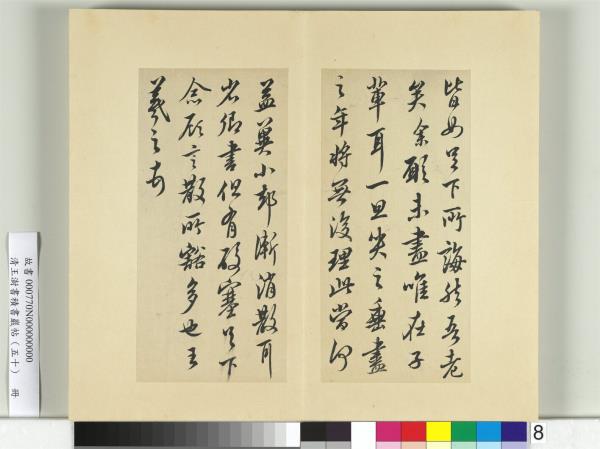 皆如足下所誨然吾老
矣余願未盡唯在子
輩耳一旦哭之垂盡
之年將無復理此當何
益冀小却漸消散耳
省卿書但有酸塞足下
念顧言散所豁多也王
羲之
故書 000770N000000000
清王澍書積書巖帖（五十） 冊
8